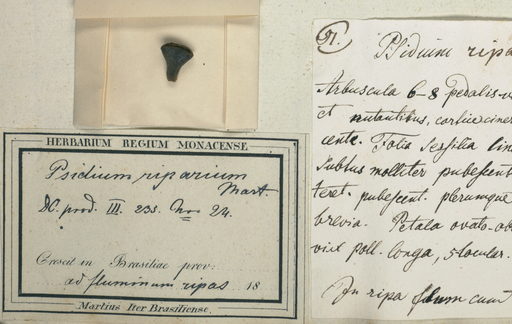 HERBARIUM REGIUM MONACENSE
Psidium riparium
Mart.
DC. prod. III. 235. No 24.
Crescit in Brasiliae prov:
ad fluminum ripas 18
Martius Iter Brasiliense.
91.
Psidium ripa
Arbuscula 6-8 pedalis
et nutantibus, cortice ciner
cente. Folia sessilia lin
subtus molliter pubescent
teret. pubescent. plerumque
brevia. Petala ovato-ob
vix poll. longa, 5locular.
In ripa flum